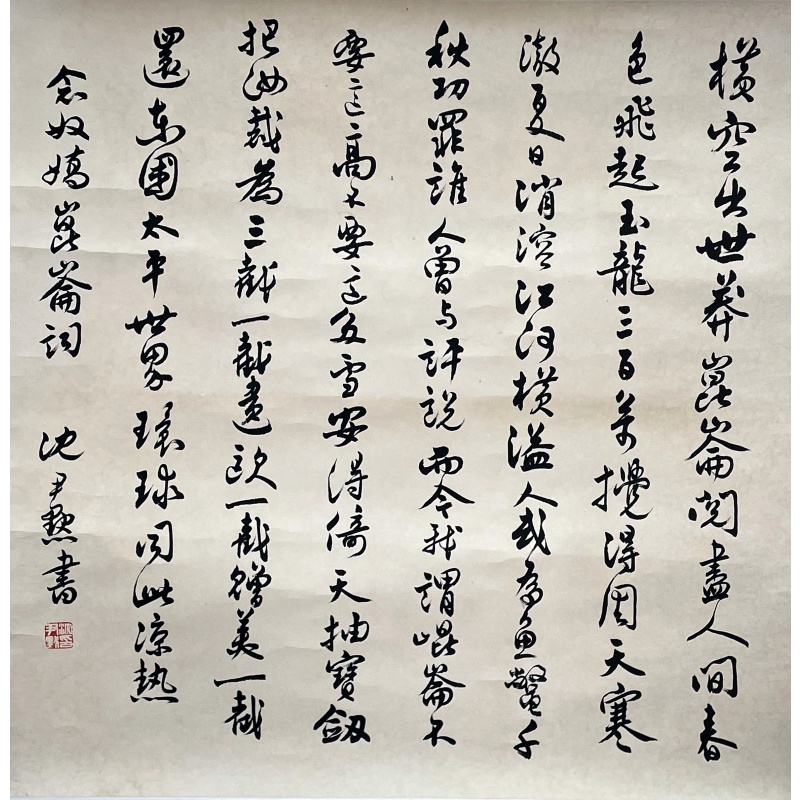 橫空出世莽崑崙閱盡人間春
色飛起玉龍三百萬攪得周天寒
澈夏日消溶江河橫溢人或為魚鱉千
秋功罪誰人曾与評說而今我謂崐崙不
要這高不要這多雪安得倚天抽寶劔
把汝裁為三截一截遺歐一截贈美一截
還東國太平世界環球同此涼熱
念奴嬌崑崙詞 沈尹默書
沈尹默